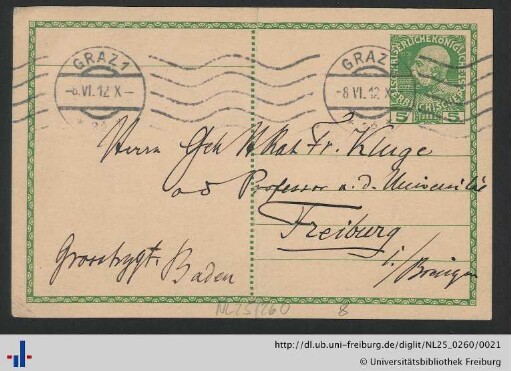 GRAZ 1
-8.VI.12 X-
GRAZ
-8.VI.12 X
5 5
Herrn Geh R Rat Fr. Kluge
Professor a. d. Universität
Freiburg
i/
Grossherzgt. Baden
NL25/260 8
http://dl.ub.uni-freiburg.de/diglit/NL25_0260/0021
© Universitätsbibliothek Freiburg